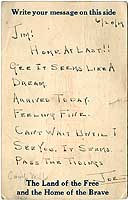 Write your message on this side
6/20/19
Jim:
Home At Last!!
Gee It Seems Like A
Dream.
Arrived Today.
Feeling Fine.
Can't Wait Until I
See You. It Seems.
Pass The Tidings
Joe
The Land of the Free
and the Home of the Brave